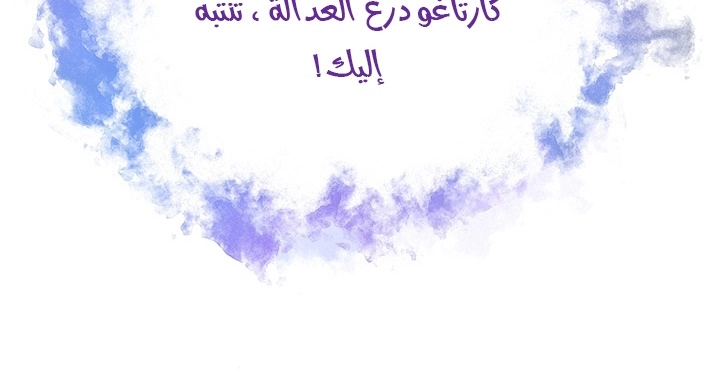 كارتاغو درع العدالة ، تنتبه
إليك!